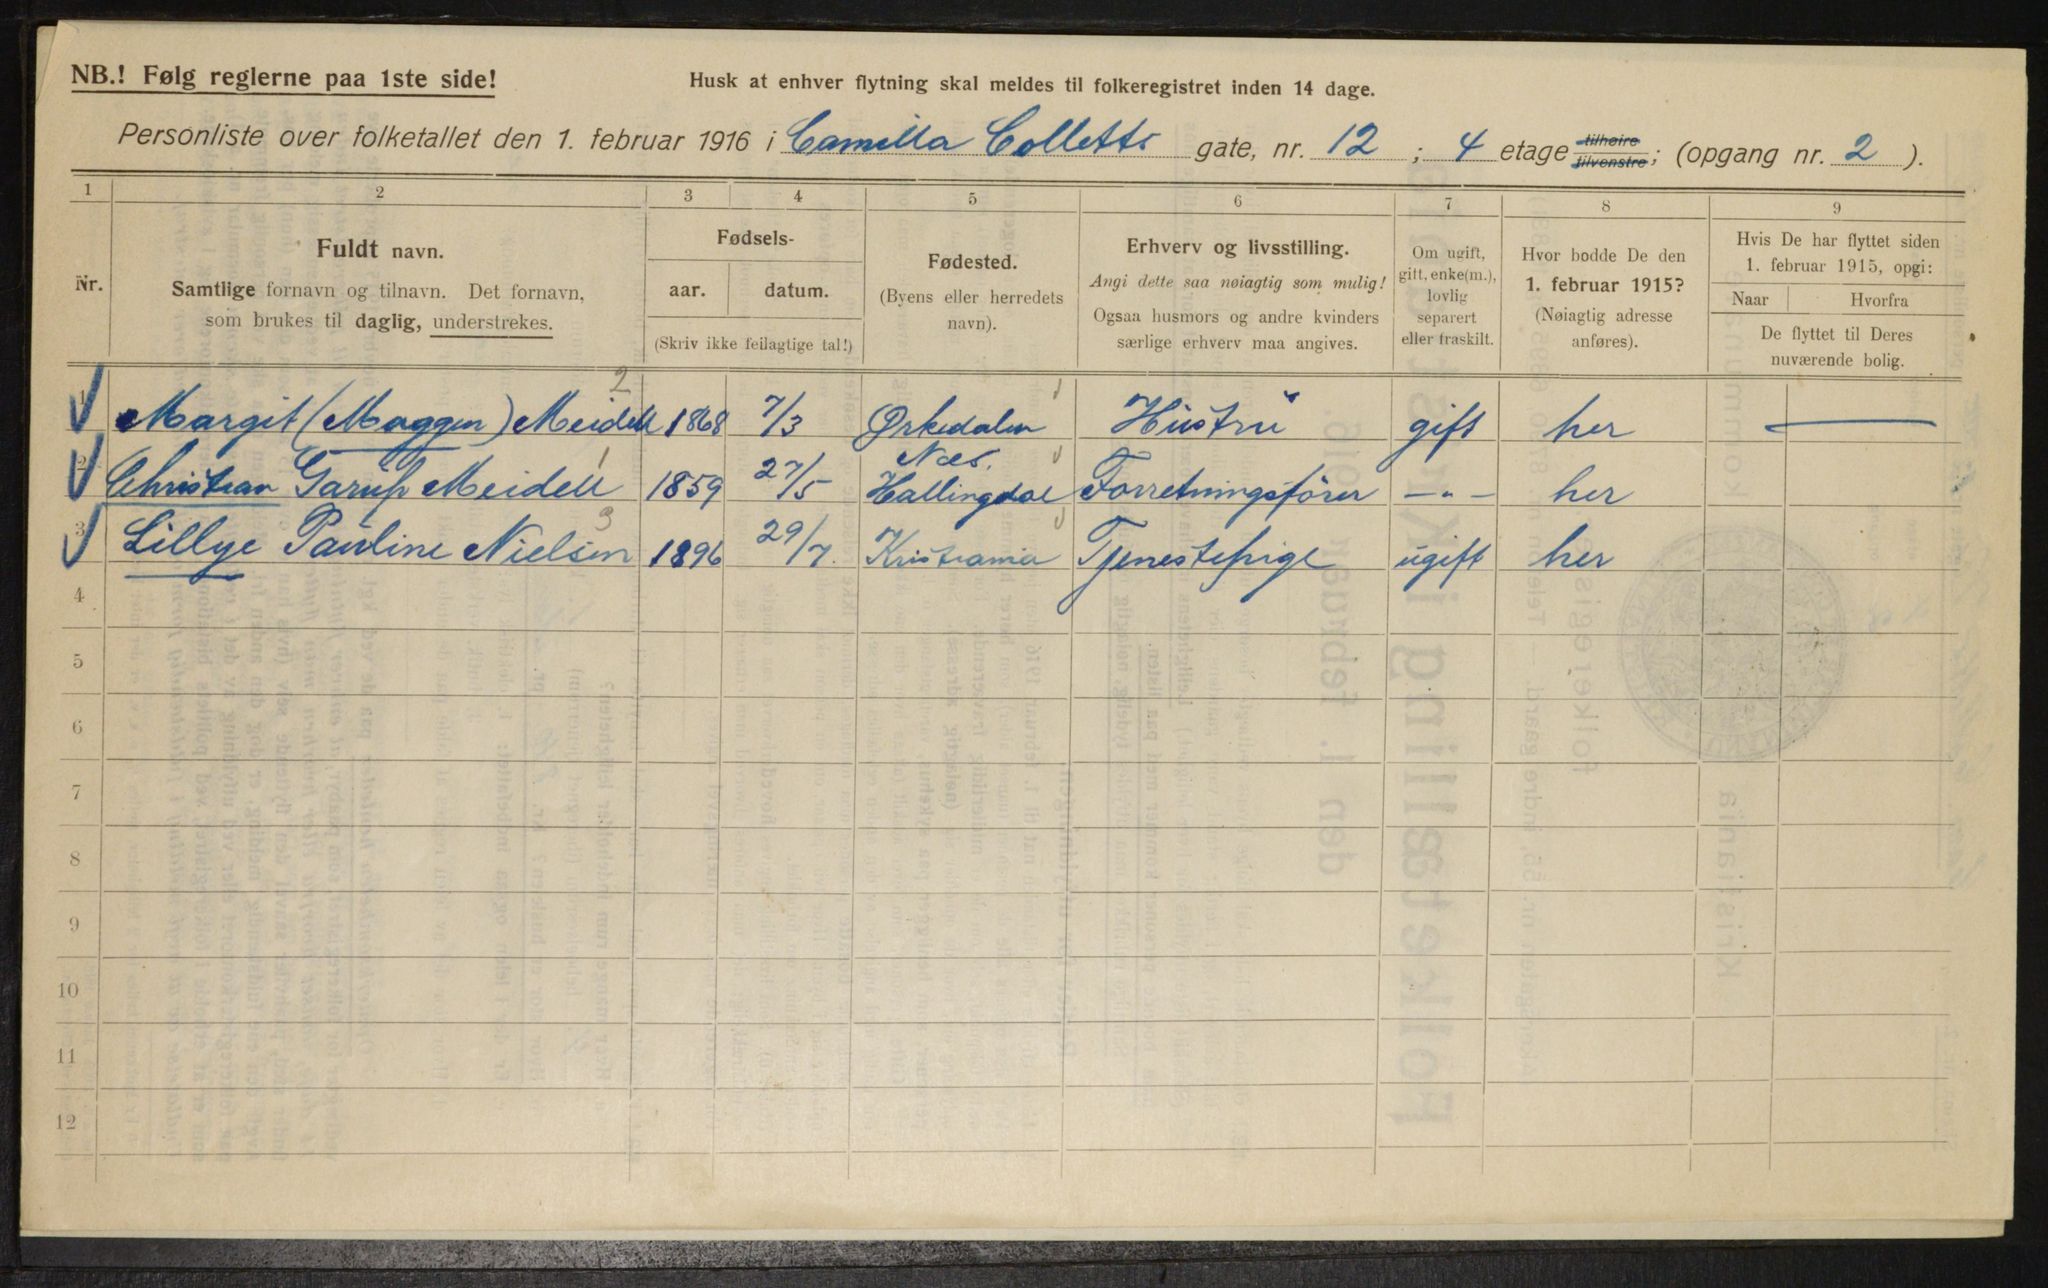 NB.! Følg reglerne paa 1ste side!
Husk at enhver flytning skal meldes til folkeregistret inden 14 dage.
Personliste over folketallet den 1. februar 1916 i Camilla Colletts gate, nr. 12 ; 4 etage tilhøire tilvenstre; (opgang nr. 2 ).
1 2 3 4 5 6 7 8 9
Nr.
Fuldt navn.
Samtlige fornavn og tilnavn. Det fornavn,
som brukes til daglig, understrekes.
Fødsels-
aar. datum.
(Skriv ikke feilagtige tal!)
Fødested.
(Byens eller herredets
navn).
Erhverv og livsstilling.
Angi dette saa nøiagtig som mulig!
Ogsaa husmors og andre kvinders
særlige erhverv maa angives.
Om ugift,
gift, enke(m.),
lovlig
separert
eller fraskilt.
Hvor bodde De den
1. februar 1915?
(Nøiagtig adresse
anføres).
Hvis De har flyttet siden
1. februar 1915, opgi:
Naar Hvorfra
De flyttet til Deres
nuværende bolig.
1 Margit (Maggen) Meidell 2 1868 7/3 Ørkedalen Hustru gift her —
2 Christian Garup Meidell 1 1859 27/5 Næs. Hallingdal Forretningsfører —"— her
3 Lillye Pauline Nielsen 3 1896 29/7. Kristiania Tjenestepige ugift her
4
5
6
7
8
9
10
11
12